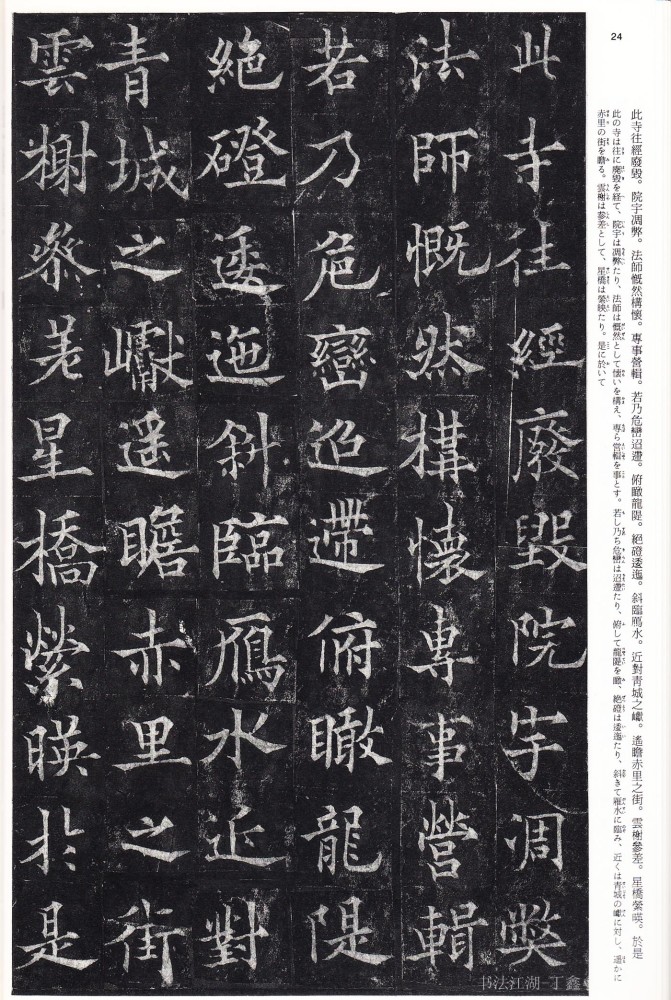 24
此寺往經廢毀。院宇凋弊。法師慨然構懷。專事營輯。若乃危巒迢遰。俯瞰龍隄。絕磴逶迤。斜臨鴈水。近對青城之巘。遙瞻赤里之街。雲榭參差。星橋縈暎。於是
此の寺は往に廢毀を経て、院宇は凋弊たり、法師は慨然として懐いを構え、専ら営輯を事とす。若し乃ち危巒は迢遰たり、俯して龍隄を瞰、絶磴は逶迤たり、斜きて雁水に臨み、近くは青城の巘に対し、遥かに
赤里の街を瞻る。雲榭は参差として、星橋は縈映たり。是に於いて
此寺往經廢毀院宇凋弊
法師慨然構懷專事營輯
若乃危巒迢遰俯瞰龍隄
絕磴逶迤斜臨鴈水近對
青城之巘遙瞻赤里之街
雲榭參差星橋縈暎於是
书法江湖-丁鑫